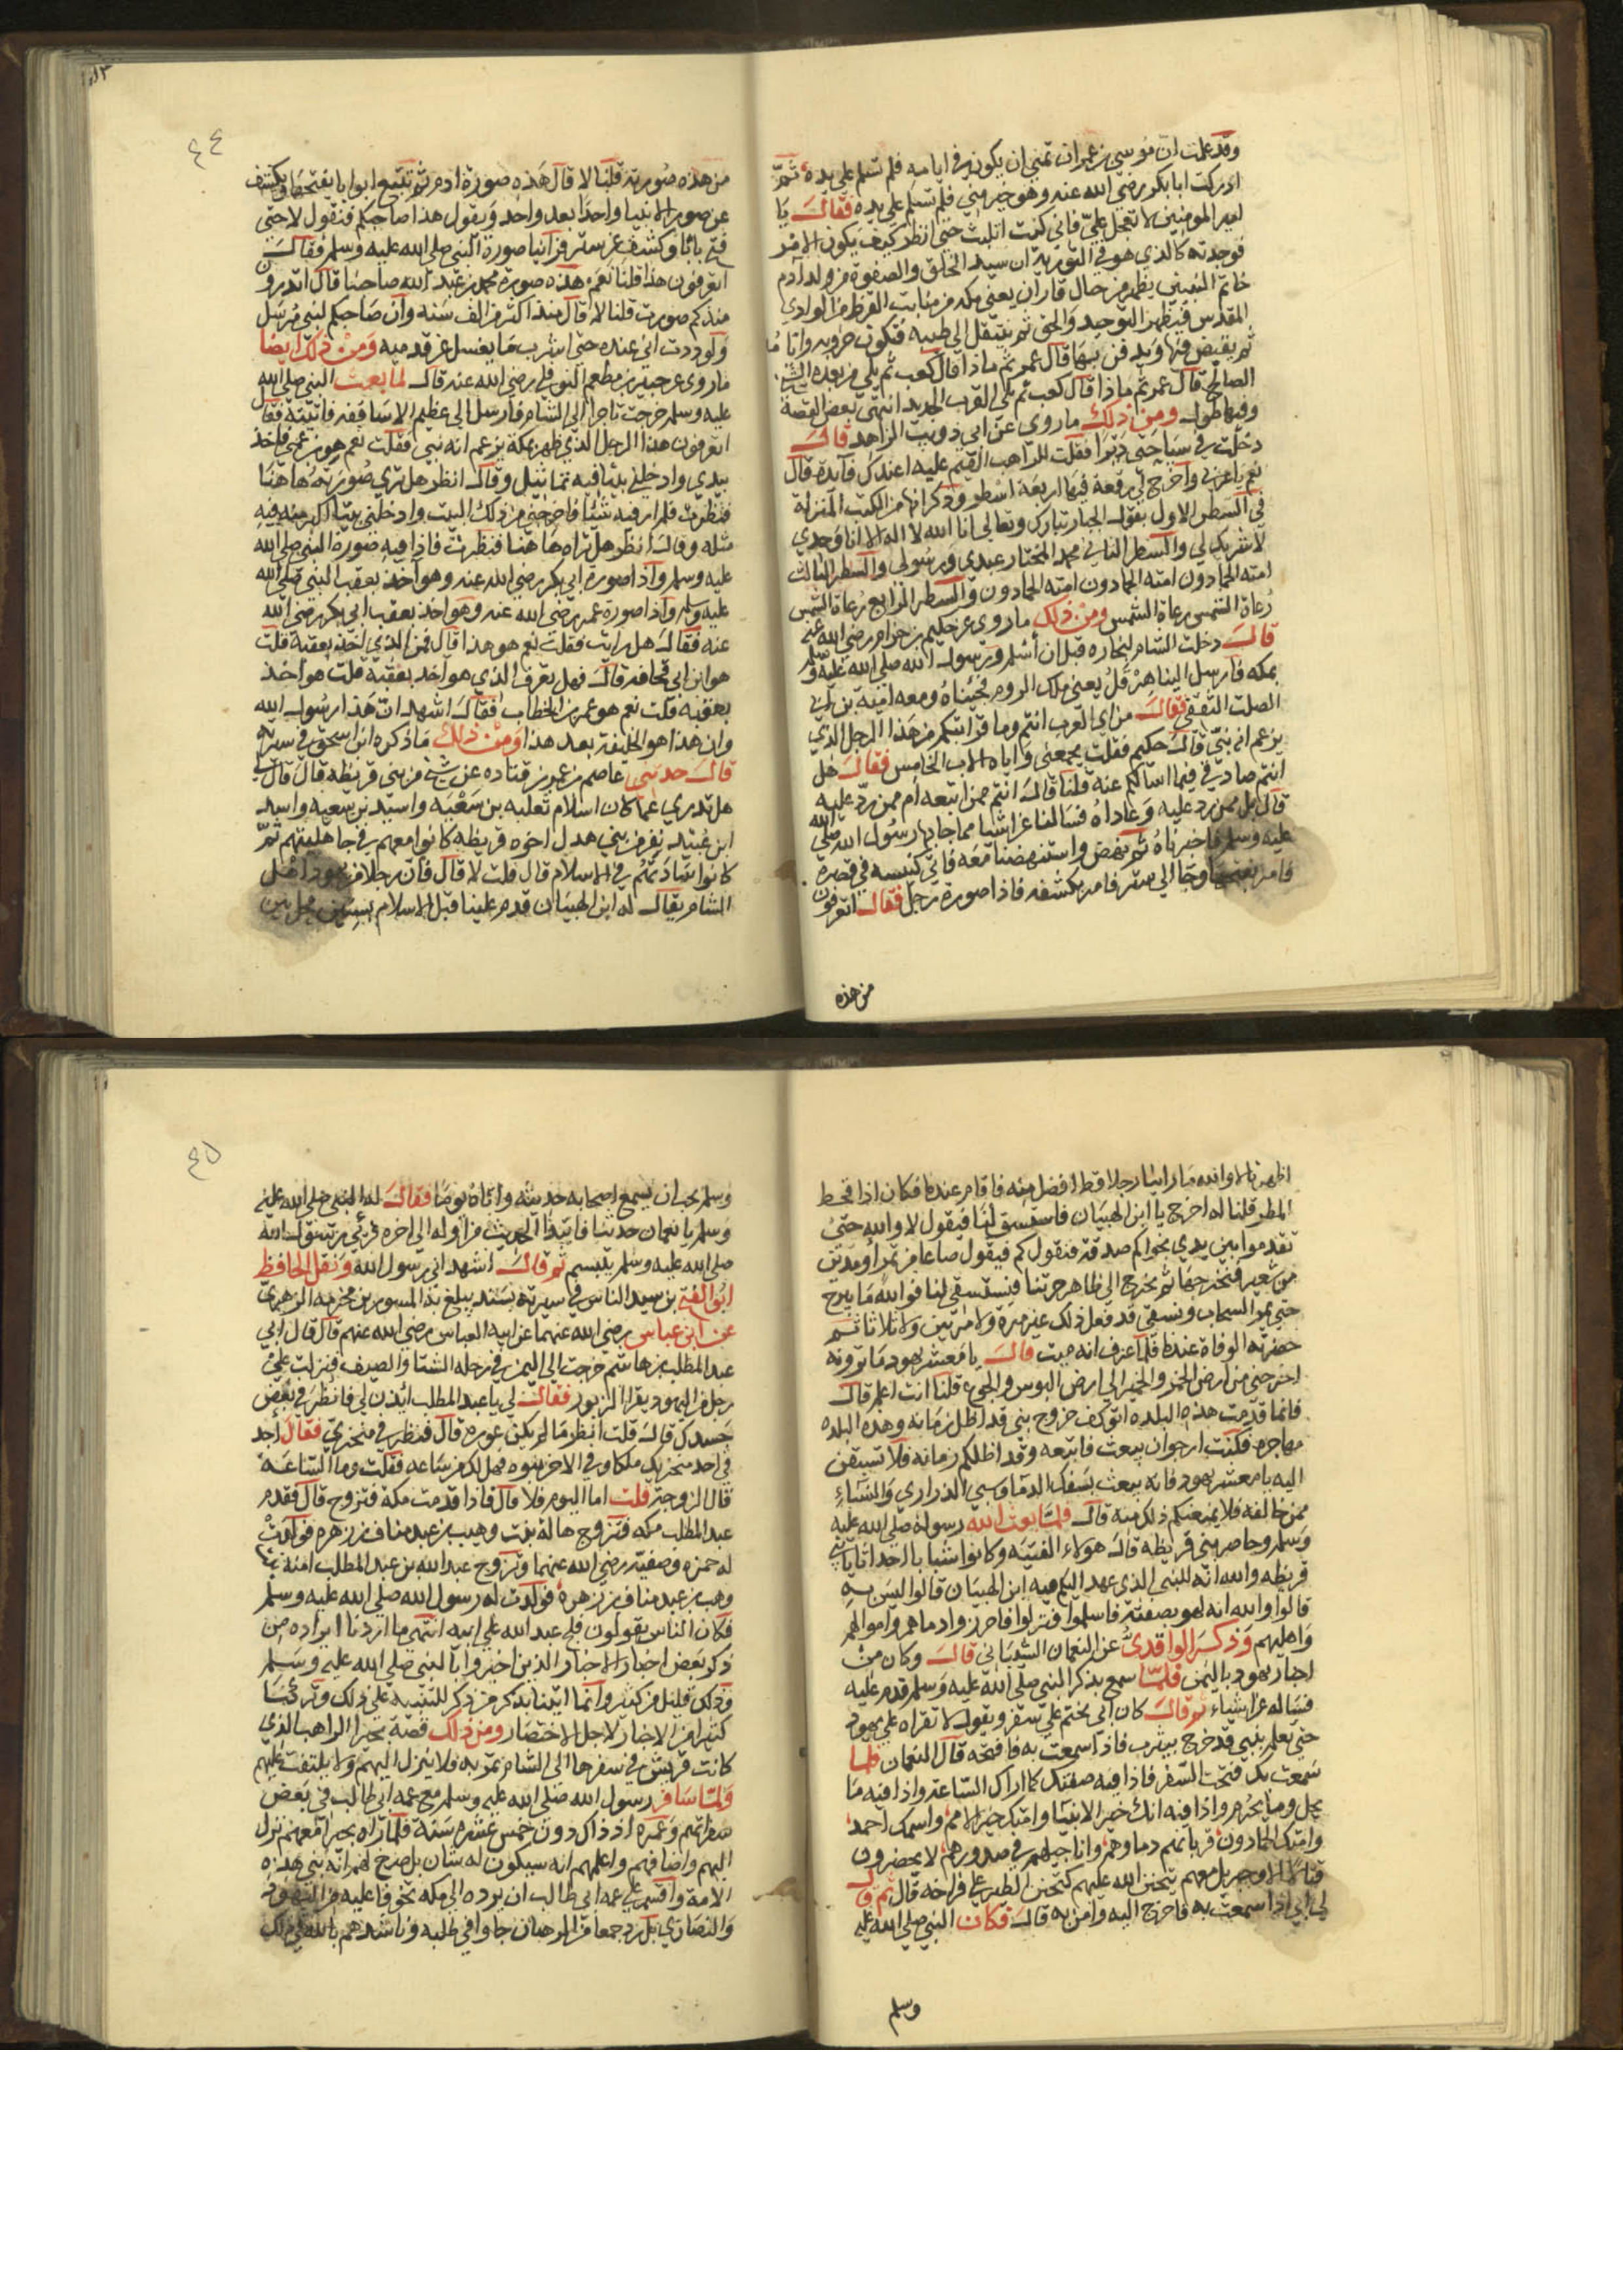 وقد علمت ان موسى بن عمران تمنى ان يكون في ايامه فلم تسلم علي يده ثم
ادركت ابا بكر رضي الله عنه وهو خير مني فلم تسلم علي يده فقال يا
امير المومنين لا تعجل علي فاني كنت اتلبث حتي انظر كيف يكون الامر
فوجدته كالذي هو في التورية ان سيد الخلق والصفوة من ولد آدم
خاتم النبيين يظهر من جبال فاران يعني مكه من منابت القرظ من الوادي
المقدس فيظهر التوحيد والحق ثم ينتقل الي طيبه فتكون حروبه وايامه
ثم يقبض فيها ويدفن بها قال عمر ثم ماذا قال كعب ثم يلي من بعده الشيخ
الصالح قال عمر ثم ماذا قال كعب ثم يلي القرن الحديد انتهى بعض القصة
وفيها طول ومن ذلك ما روي عن ابي ذويب الزاهد قال
دخلت في سياحتي ديرا فقلت للراهب القيم عليه اعندك فايدة قال
نعم يا عربي واخرج لي رقعة فيها اربعة اسطر وذكر انها من الكتب المنزلة
في السطر الاول يقول الجبار تبارك وتعالى انا الله لا اله الا انا وحدي
لا شريك لي والسطر الثاني محمد المختار عبدي ورسولي والسطر الثالث
امته الحمادون امته الحمادون امته الحمادون والسطر الرابع رعاة الشمس
رعاة الشمس رعاة الشمس ومن ذلك ما روي عن حكيم بن حزام رضي الله عنه
قال دخلت الشام لتجارة قبل ان أسلم ورسول الله صلى الله عليه وسلم
بمكه فارسل الينا هرقل يعني ملك الروم فجيناه ومعه امية بن ابي
الصلت الثقفي فقال من اي العرب انتم وما قرابتكم من هذا الرجل الذي
يزعم انه نبي قال حكيم فقلت يجمعني واياه الاب الخامس فقال هل
انتم صادقي فيما اسالكم عنه قلنا قال انتم ممن اتبعه أم ممن رد عليه
قال بل ممن رد عليه وعاداه فسالنا عن اشيا مما جا بها رسول الله صلى الله
عليه وسلم فاخبرناه ثم نهض واستنهضنا معه فاتي كنيسه في قصره
فامر بفتحها وجا الي ستر فامر بكشفه فاذا صورة رجل فقال اتعرفون
من هذه
٤٤
من هذه صورته قلنا لا قال هذه صورة ادم ثم تتبع ابوابا يفتحها ويكشف
عن صور الانبيا واحدا بعد واحد ويقول هذا صاحبكم فنقول لا حتي
فتح بابا وكشف عن ستر فراينا صورة النبي صلى الله عليه وسلم فقال
اتعرفون هذا قلنا نعم هذه صورة محمد بن عبد الله صاحبنا قال اتدرون
منذ كم صورت قلنا لا قال منذ اكثر من الف سنة وان صاحبكم لنبي مرسل
ولوددت اني عنده حتي اشرب ما يغسل عن قدميه ومن ذلك ايضا
ما روي عن جبير بن مطعم النوفلي رضي الله عنه قال لما بعث النبي صلى الله
عليه وسلم خرجت تاجرا الي الشام فارسل الي عظيم الاساقفه فاتيته فقال
اتعرفون هذا الرجل الذي ظهر بمكة يزعم انه نبي فقلت نعم هو بن عمي فاخذ
بيدي وادخلني بيتا فيه تماثيل وقال انظر هل تري صورته هاهنا
فنظرت فلم ار فيه شيئا فاخرجني من ذلك البيت وادخلني بيتا اكبر منه فيه
مثله وقال انظر هل تراه هاهنا فنظرت فاذا فيه صورة النبي صلى الله
عليه وسلم واذا صورة ابي بكر رضي الله عنه وهو اخذ بعقب النبي صلى الله
عليه وسلم واذا صورة عمر رضي الله عنه وهو اخذ بعقب ابي بكر رضي الله
عنه فقال هل رايت فقلت نعم هو هذا قال فمن الذي اخذ بعقبه قلت
هو ابن ابي قحافه قال فهل تعرف الذي هو اخذ بعقبه قلت هو اخذ
بعقبه قلت نعم هو عمر بن الخطاب فقال اشهد ان هذا رسول الله
وان هذا هو الخليفة بعد هذا ومن ذلك ما ذكره ابن اسحق في سيرته
قال حدثني عاصم بن عمر بن قتاده عن شيخ من بني قريظه قال قال لي
هل تدري عما كان اسلام ثعلبه بن سعيه واسيد بن سعيه واسد
ابن عبيد نفر من بني هدل اخوه قريظه كانوا معهم في جاهليتهم ثم
كانوا ساداتهم في الاسلام قال قلت لا قال فان رجلا من يهود اهل
الشام يقال له ابن الهيبان قدم علينا قبل الاسلام بسنين فحل بين
اظهرنا لا والله ما راينا رجلا قط افضل منه فاقام عندنا فكان اذا قحط
المطر قلنا له اخرج يا ابن الهيبان فاستسق لنا فيقول لا والله حتي
تقدموا بين يدي نجواكم صدقة فنقول كم فيقول صاعا من تمر او مدين
من شعير فنخرجها ثم يخرج الي ظاهر حرتنا فيستسقي لنا فوالله ما يبرح
حتي يمر السحاب ونسقي قد فعل ذلك غير مره ولا مرتين ولا ثلاثا ثم
حضرته الوفاة عندنا فلما عرف انه ميت قال يا معشر يهود ما ترونه
اخرجني من ارض الخمر والخمير الي ارض البوس والجوع قلنا انت اعلم قال
فانما قدمت هذه البلده اتوكف خروج نبي قد اظل زمانه وهذه البلده
مهاجره فكنت ارجو ان يبعث فاتبعه وقد اظلكم زمانه فلا تسبقن
اليه يا معشر يهود فانه يبعث بسفك الدما وسبي الذراري والنساء
ممن خالفه فلا يمنعنكم ذلك منه قال فلما بعث الله رسوله صلى الله عليه
وسلم وحاصر بني قريظه قال هولاء الفتيه وكانوا شبابا احداثا يا بني
قريظه والله انه للنبي الذي عهد اليكم فيه ابن الهيبان قالوا ليس به
قالوا والله انه لهو بصفته فاسلموا فنزلوا فاحرزوا دماهم واموالهم
واهليهم وذكر الواقدي عن النعمان السباني قال وكان من
احبار يهود باليمن فلما سمع بذكر النبي صلى الله عليه وسلم قدم عليه
فساله عن اشياء ثم قال كان ابي يختم علي سفر ويقول لا تقراه علي يهود
حتي تعلم بنبي قد خرج بيثرب فاذا سمعت به فافتحه قال النعمان فلما
سمعت بك فتحت السفر فاذا فيه صفتك كما اراك الساعة واذا فيه ما
يحل وما يحرم واذا فيه انك خير الانبيا وامتك خير الامم واسمك احمد
وامتك الحمادون قربانهم دماوهم واناجيلهم في صدورهم لا يحضرون
قتالا الا وجبريل معهم يتحنن الله عليهم كتحنن الطير علي فراخه قال ثم قال
لي ابي اذا سمعت به فاخرج اليه وامن به قال فكان النبي صلى الله عليه
وسلم
٤٥
وسلم يحب ان يسمع اصحابه حديثه واتاه يوما فقال له النبي صلى الله عليه
وسلم يا نعمان حدثنا فابتدا الحديث من اوله الي اخره فرئي رسول الله
صلى الله عليه وسلم يتبسم ثم قال اشهد اني رسول الله ونقل الحافظ
ابو الفتح بن سيد الناس في سيرته بسند يبلغ به المسور بن مخرمه الزهري
عن ابن عباس رضي الله عنهما عن ابيه العباس رضي الله عنهم قال قال ابي
عبد المطلب بن هاشم خرجت الي اليمن في رحله الشتا والصيف فنزلت علي
رجل من اليهود يقرا الزبور فقال لي يا عبد المطلب ائذن لي فانظر في بعض
جسدك قال قلت انظر ما لم يكن عورة قال فنظر في منخري فقال اجد
في احد منخريك ملكا وفي الاخر نبوه فهل لك من شاعه فقلت وما الشاعة
قال الزوجة قلت اما اليوم فلا قال فاذا قدمت مكة فتزوج قال فقدم
عبد المطلب مكه فتزوج هالة بنت وهيب بن عبد مناف بن زهره فولدت
له حمزه وصفيه رضي الله عنهما وتزوج عبد الله بن عبد المطلب امنة بنت
وهب بن عبد مناف بن زهرة فولدت له رسول الله صلى الله عليه وسلم
فكان الناس يقولون فلج عبد الله علي ابيه انتهى ما اردنا ايراده من
ذكر بعض اخبار الاحبار الذين اخبروا بالنبي صلى الله عليه وسلم
وذلك قليل من كثير وانما اتينا بذكر من ذكر للتنبيه علي ذلك وتركنا
كثيرا من الاخبار لاجل الاختصار ومن ذلك قصة بحيرا الراهب الذي
كانت قريش في سفرها الي الشام تمر به فلا ينزل اليهم ولا يلتفت عليهم
ولما سافر رسول الله صلى الله عليه وسلم مع عمه ابي طالب في بعض
سفراتهم وعمره اذ ذاك دون خمس عشره سنة فلما راه بحيرا معهم نزل
اليهم واضافهم واعلمهم انه سيكون له شان بل صرح لهم انه نبي هذه
الامة واقسم علي عمه ابي طالب ان يرده الي مكه تخوفا عليه من اليهود
والنصاري بل رد جمعا من الرهبان جاوا في طلبه وناشدهم بالله في ذلك